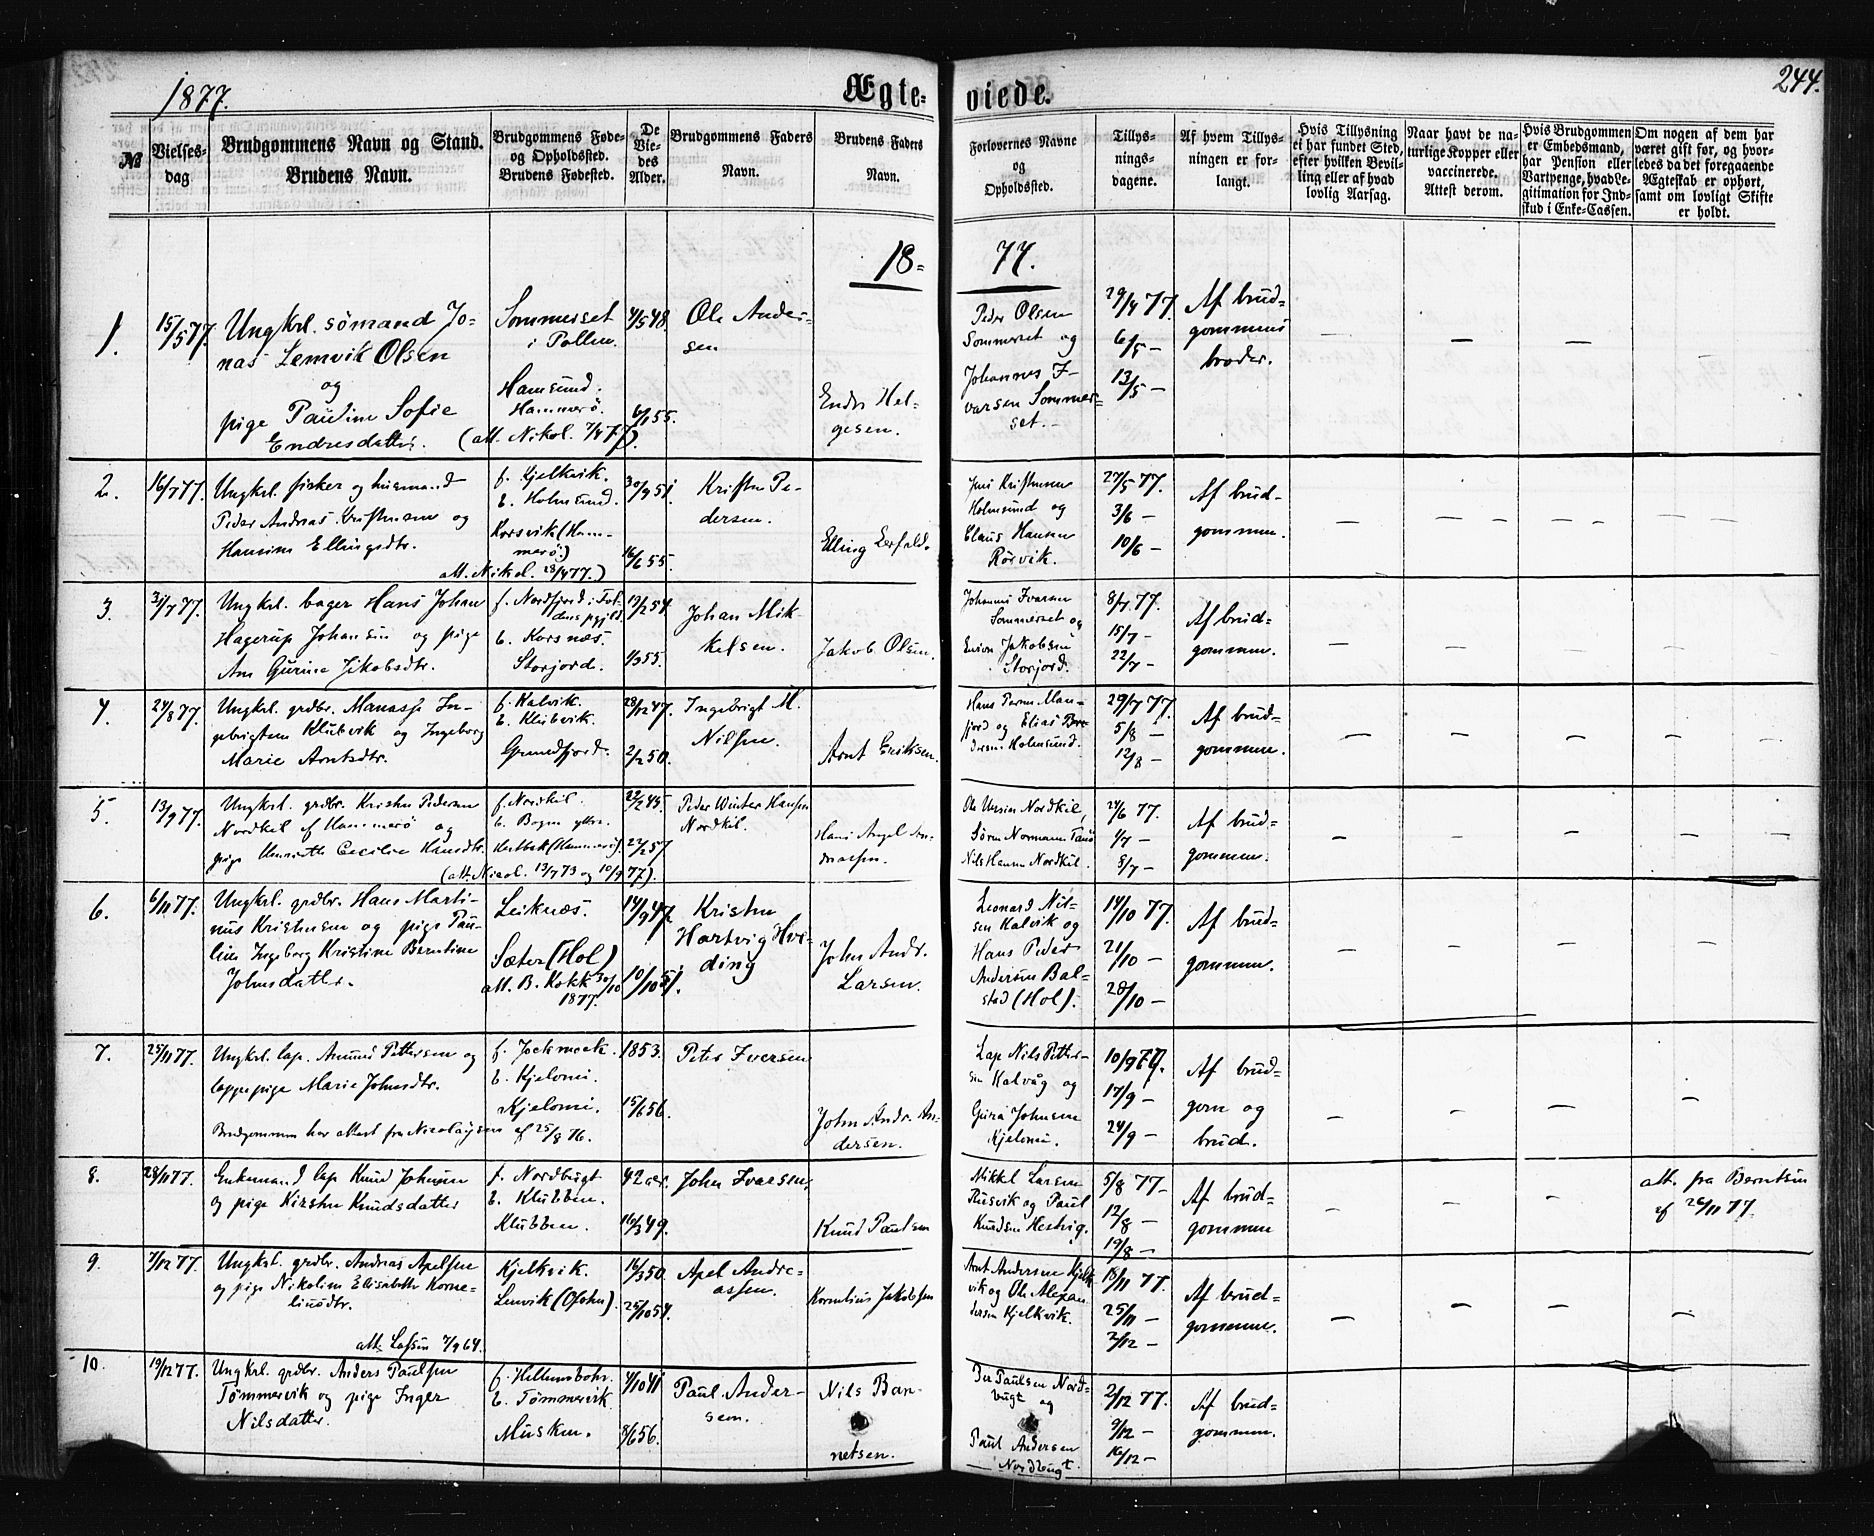 1877.
Ægteviede.
244.
№
Vielsesdag
Brudgommens Navn og Stand.
Brudens Navn.
Brudgommens Føde-
og Opholdssted.
Brudens Fødested.
De
Vie-
des
Alder.
Brudgommens Faders
Navn.
Brudens Faders
Navn.
Forlovernes Navne
og
Opholdssted.
Tillys-
nings-
dagene.
Af hvem Tillys-
ningen er for-
langt.
Hvis Tillysning
ei har fundet Sted,
efter hvilken Bevil-
ling eller af hvad
lovlig Aarsag.
Naar havt de na-
turlige Kopper eller
vaccinerede.
Attest derom.
Hvis Brudgommen
er Embedsmand,
har Pension eller
Vartpenge, hvad Le-
gitimation for Ind-
skud i Enke-Cassen.
Om nogen af dem har
været gift før, og hvor-
ledes da det foregaaende
Ægteskab er ophørt,
samt om lovligt Skifte
er holdt.
18= 77.
1.
15/5 77.
Ungkrl. sömand Jo-
nas Lemvik Olsen
og
pige Pauline Sofie
Endresdatter.
Sommerset
i Pollen.
Hamsund.
Hammerö.
(att. Nikol. 7/4 77).
4/5 48.
6/1 55.
Ole Ander-
sen
Endre Hel-
gesen.
Peder Olsen
Sommerset og
Johannes I-
varsen Sommer-
set.
29/4 77.
6/5 –
13/5 –
Af brud-
gommens
broder.
2.
16/7 77.
Ungkrl. fisker og husmand
Peder Andreas Kristensen og
Hansine Ellingsdtr.
f. Kjelkvik.
b. Holmsund.
Korsvik (Ham-
merö)
att. Nikol. 28/4 77.)
30/9 51.
16/6 55.
Kristen Pe-
dersen.
Elling
Jens Kristensen
Holmsund og
Claus Hansen
Rörvik.
27/5 77.
3/6 –
10/6 –
Af brud-
gommen.
3.
31/7 77.
Ungkrl. bager Hans Johan
Hagerup Johansen og pige
Ane Gurine Jakobsdtr.
f. Nordfjord i Fol-
dens pgjld.
b. Korsnæs.
Storjord.
13/2 54.
1/3 55.
Johan Mik-
kelsen.
Jakob Olsen.
Johannes Ivarsen
Sommerset og
Jakobsen
Storjord.
8/7 77.
15/7 –
22/7 –
Af brud-
gommen.
4.
24/8 77.
Ungkrl. grdbr. Manasse In-
gebrigtsen Klubvik og Ingeborg
Marie Arntsdtr.
f. Kalvik.
b. Klubvik.
Grundfjord.
28/12 47.
2/2 50.
Ingebrigt M.
Nilsen.
Arnt Eriksen.
Hans
og Elias
Holmsund.
29/7 77.
5/8 –
12/8 –
Af brud-
gommen.
5.
13/9 77.
Ungkrl. grdbr. Kristen Pedersen
Nordkil af Hammerö og
pige Henriette Cecilie Hansdtr.
(att. Nicol. 13/7 73 og 10/9 77).
f. Nordkil.
b. Bogen
(Hammerö).
22/2 45.
27/2 57
Peder Winter Hansen
Nordkil.
Hans Angel An-
dreassen.
Nordkil,
Sören Normann
Nils Hansen Nordkil.
24/6 77.
1/7 –
8/7 –
Af brud-
gommen.
6.
6/11 77.
Ungkrl. grdbr. Hans Marti-
nus Kristensen og pige Pau-
line Ingeborg Kristine Berntine
Johnsdatter.
Leiknæs.
Sæter (Hol)
att. B. Kokk 30/10
1877.
14/9 47.
10/10 51.
Kristen
Hartvig Hvi-
ding
John Andr.
Larsen.
Leonard Nil-
sen Kalvik og
Hans Peder
Andersen Bal-
stad (Hol).
14/10 77.
21/10 –
28/10 –
Af brud-
gommen.
7.
25/11 77.
Ungkrl. lap. Pettersen og
lappepige Marie Johnsdtr.
Brudgommen har attest fra Nicolaysen af 25/8 76.
f. Jockmock.
b. Kjelomi.
Kjelomi.
1853.
15/6 56.
Peter Iversen
John Andr. An-
dersen.
Lap Nils Petter-
sen Kalvåg og
Johnsen
Kjelomi.
10/9 77.
17/9 –
24/9 –
Af brud-
gom og
brud.
8.
28/11 77.
Enkemand lap Knud Johnsen
og pige Kirsten Knudsdatter
f. Nordbugt
b. Klubben.
Klubben.
42 aar.
16/3 49.
John Ivarsen.
Knud Paulsen
Mikkel Larsen
Rusvik og Paul
Knudsen
5/8 77 –
12/8 –
19/8 –
Af brud-
gommen
att. fra Berntsen
af 26/11 77.
9.
7/12 77.
Ungkrl. grdbr. Andreas Apelsen
og pige Nikoline Elisabeth Korne-
liusdtr.
att. 7/9 64.
Kjelkvik.
Lenvik (Ofohn).
16/3 50.
25/10 54.
Apel Andre-
assen.
Kornelius Jakobsen
Arnt Andersen Kjelk-
vik og Ole Alexan-
dersen Kjelkvik.
18/11 77.
25/11 –
2/12 –
Af brud-
gommen.
10.
19/12 77.
Ungkrl. grdbr. Anders Paulsen
Tömmervik og pige Inger
Nilsdatter.
f. Hellembotn.
b. Tömmervik
Musken.
4/10 41
8/6 56.
Paul Ander-
sen.
Nils Bar-
netsen.
Per Paulsen Nord-
bugt og
Paul Andersen
Nordbugt.
2/12 77.
9/12 –
16/12 –
Af brud-
gommen.